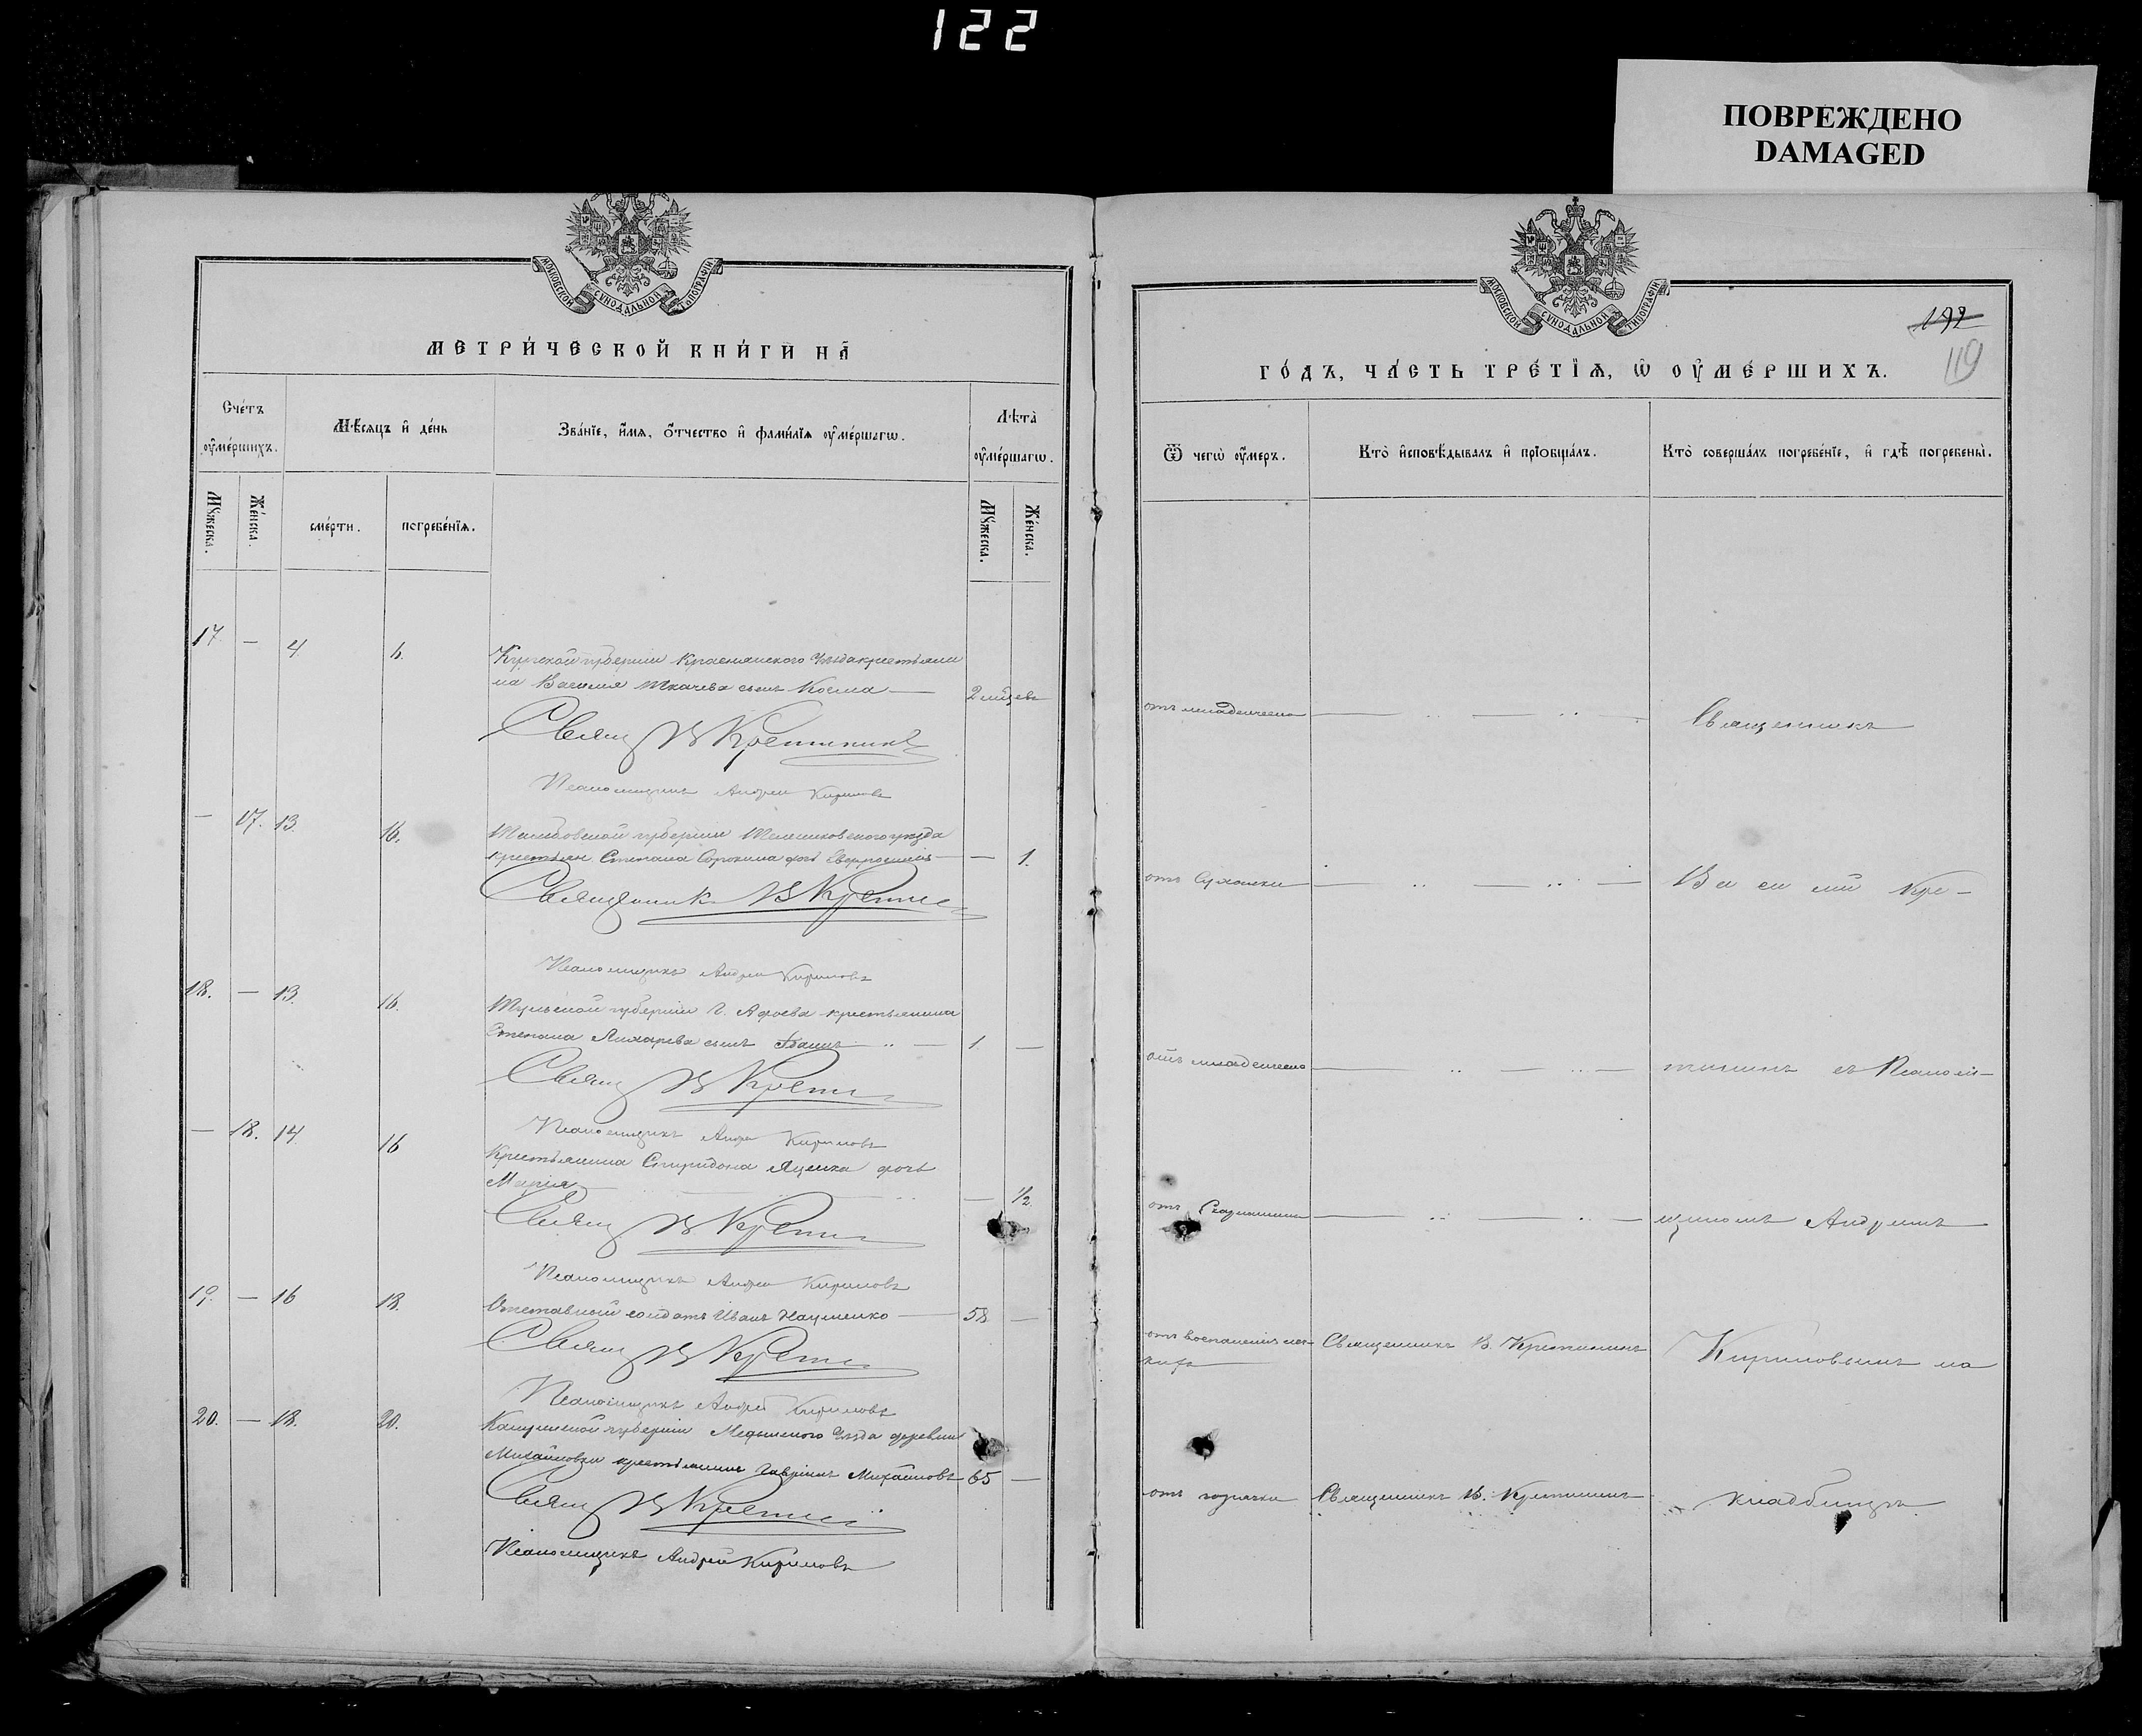 122
ПОВРЕЖДЕНО
DAMAGED
МОСКОВСКОЙ СѴНОДАЛЬНОЙ ТИПОГРАФІИ
МЕТРИ́ЧЕСКОЙ КНИ́ГИ НА̀
Сче́тъ ᲂу҆ме́ршихъ.
Мѣ́сяцъ и҆ де́нь
Зва́нїе, и҆́мя, ѻ҆́тчество и҆ фами́лїя ᲂу҆ме́ршагѡ.
Лѣта̀ ᲂу҆ме́ршагѡ.
Мꙋ́жеска.
Же́нска.
сме́рти.
погребе́нїѧ.
Мꙋ́жеска.
Же́нска.
17. — 4. 6.
Курской губерніи Уѣзда крестьяни
на Василія Ткачева сынъ Косма —
2 мѣсцевъ
Свящ В Крестининъ
Псаломщикъ Андрей Кириловъ
— 17. 13. 16.
Тамбовской губерніи уѣзда
крестьян. Степана Сорокина дочь — — 1.
Священник В Крести
Псаломщикъ Андрей Кириловъ
18. — 13. 16.
Тульской губерніи г. крестьянина
Степана сынъ Іванъ — 1. —
Свящ В Крести
Псаломщикъ Андр Кириловъ
— 18. 14. 16
Крестьянина Спиридона Яценка дочь
Марія — — 1/2
Свящ В Крести
Псаломщикъ Андрей Кириловъ
19. — 16 18.
Отставный солдатъ Иванъ Науменко — 58 —
Свящ В Крести
Псаломщикъ Андрей Кириловъ
20. — 18. 20.
Калужской губерніи Уѣзда деревни
Михайловки крестьянинъ Гавріилъ Михайловъ 65 —
Свящ В Крести
Псаломщикъ Андрей Кириловъ
МОСКОВСКОЙ СѴНОДАЛЬНОЙ ТИПОГРАФІИ
119
ГО́ДЪ, ЧА́СТЬ ТРЕ́ТЇѦ, Ѡ҆ ОУ҆МЕ́РШИХЪ.
Ѿ чегѡ̀ ᲂу҆́меръ.
Кто̀ и҆сповѣ́дывалъ и҆ прїѡбща́лъ.
Кто̀ соверша́лъ погребе́нїе, и҆ гдѣ̀ погребены̀.
отъ младенческо —
Священникъ
отъ Сухотки —
Василій Кре-
отъ младенческо —
тининъ съ Псалом-
отъ —
щикомъ Андреемъ
отъ воспаленія лег-
кихъ
Священникъ В. Крестининъ
Кириловымъ на
отъ горячки
Священникъ В. Крестининъ
кладбищѣ